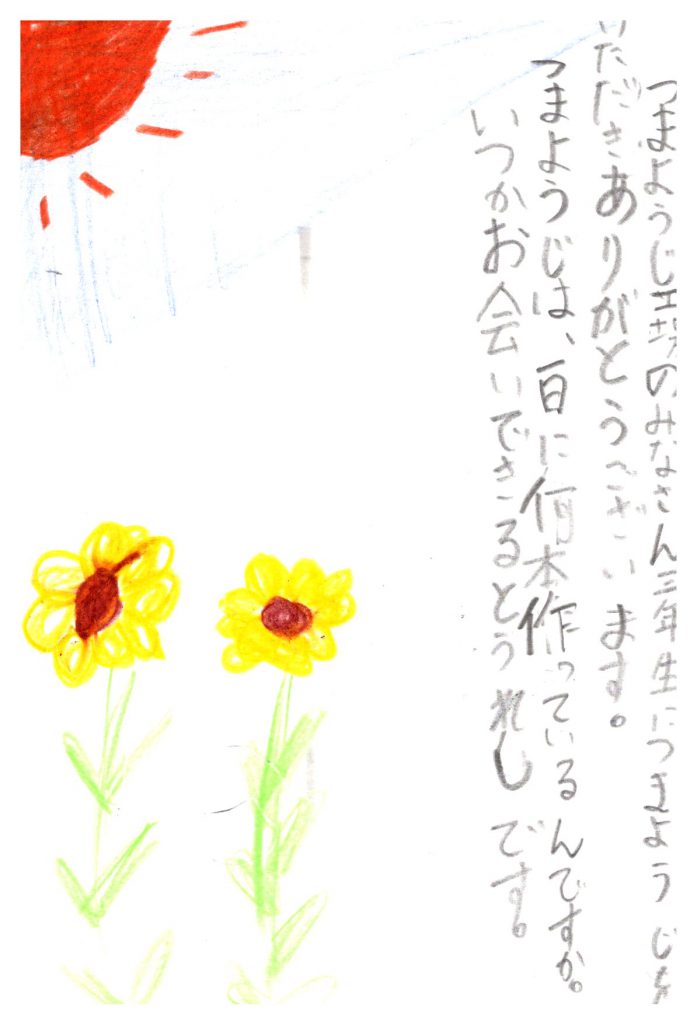 つまようじ工場のみなさん三年生につまようじを
いただきありがとうございます。
つまようじは、一日に何本作っているんですか。
いつかお会いできるとうれしです。